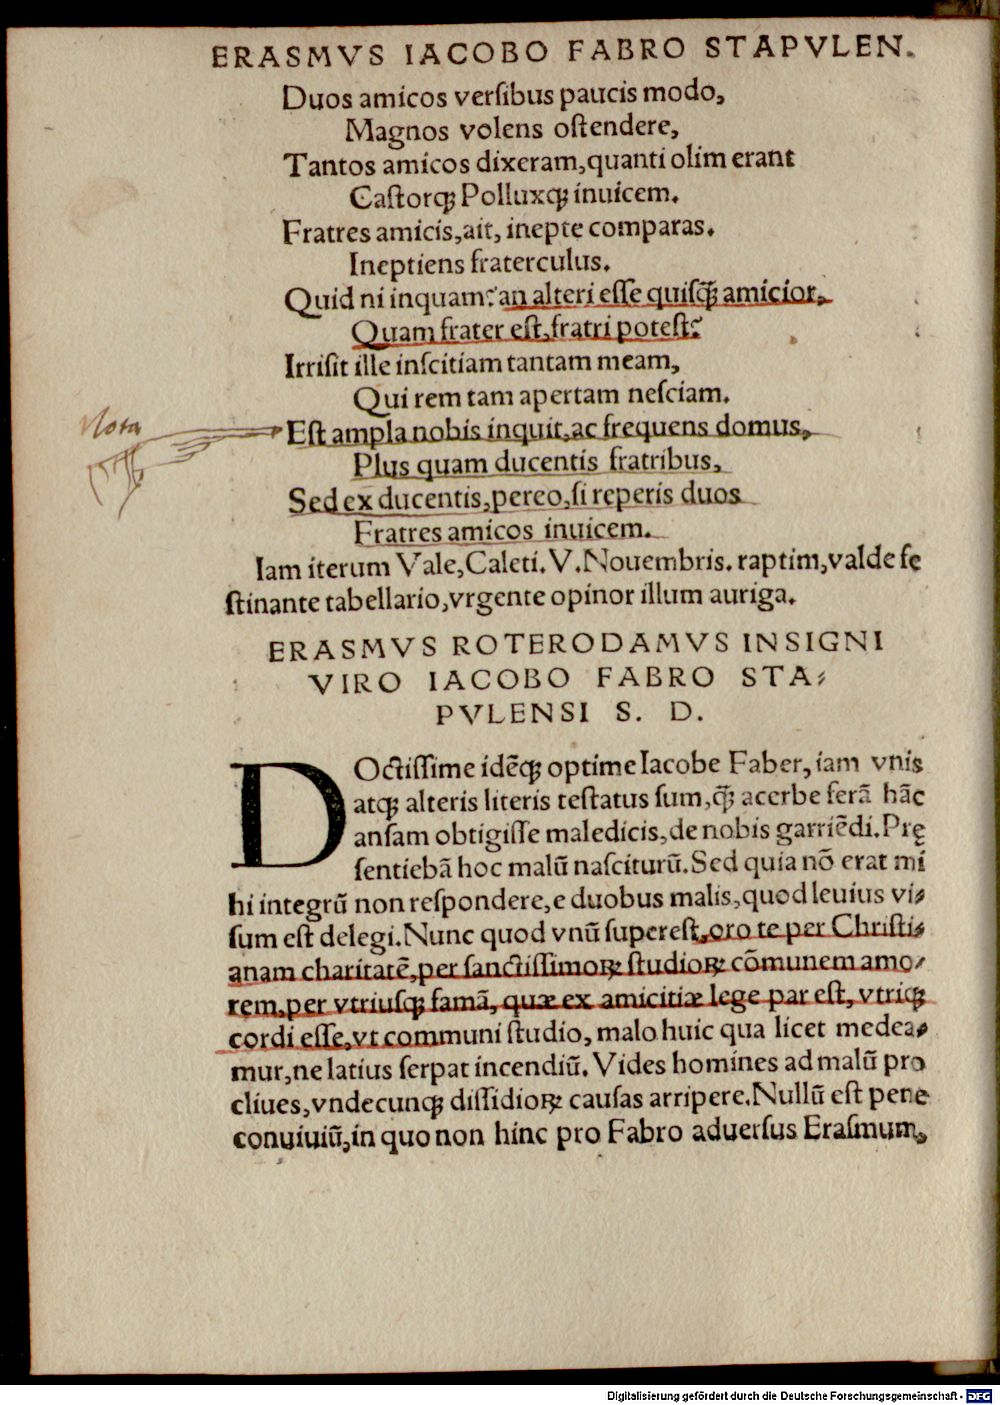 ERASMVS IACOBO FABRO STAPVLEN.
Duos amicos verſibus paucis modo,
Magnos volens oſtendere,
Tantos amicos dixeram,quanti olim erant
Caſtorꝗ Polluxꝗ inuicem.
Fratres amicis,ait, inepte comparas.
Ineptiens fraterculus.
Quid ni inquam?an alteri eſſe quiſꝗ̃ amicior,
Quam frater eſt,fratri poteſt?
Irriſit ille inſcitiam tantam meam,
Qui rem tam apertam neſciam.
Nota
Eſt ampla nobis inquit,ac frequens domus,
Plus quam ducentis fratribus,
Sed ex ducentis,pereo,ſi reperis duos
Fratres amicos inuicem.
Iam iterum Vale,Caleti.V.Nouembris.raptim,valde fe
ſtinante tabellario,vrgente opinor illum auriga.
ERASMVS ROTERODAMVS INSIGNI
VIRO IACOBO FABRO STA⸗
PVLENSI S. D.
DOctiſſime idẽꝗ optime Iacobe Faber,iam vnis
atꝗ alteris literis teſtatus ſum,ꝗ̃ acerbe ferã hãc
anſam obtigiſſe maledicis,de nobis garriẽdi.Prę
ſentiebã hoc malũ naſciturũ.Sed quia nõ erat mi
hi integrũ non reſpondere,e duobus malis,quod leuius vi⸗
ſum eſt delegi.Nunc quod vnũ ſupereſt,oro te per Chriſti⸗
anam charitatẽ,per ſanctiſſimoꝝ ſtudioꝝ cõmunem amo⸗
rem,per vtriuſꝗ famã, quæ ex amicitiæ lege par eſt, vtriꝗ
cordi eſſe,vt communi ſtudio, malo huic qua licet medea⸗
mur,ne latius ſerpat incendiũ.Vides homines ad malũ pro
cliues,vndecunꝗ diſſidioꝝ cauſas arripere.Nullũ eſt pene
conuiuiũ,in quo non hinc pro Fabro aduerſus Eraſmum,
Digitalisierung gefördert durch die Deutsche Forschungsgemeinschaft - DFG